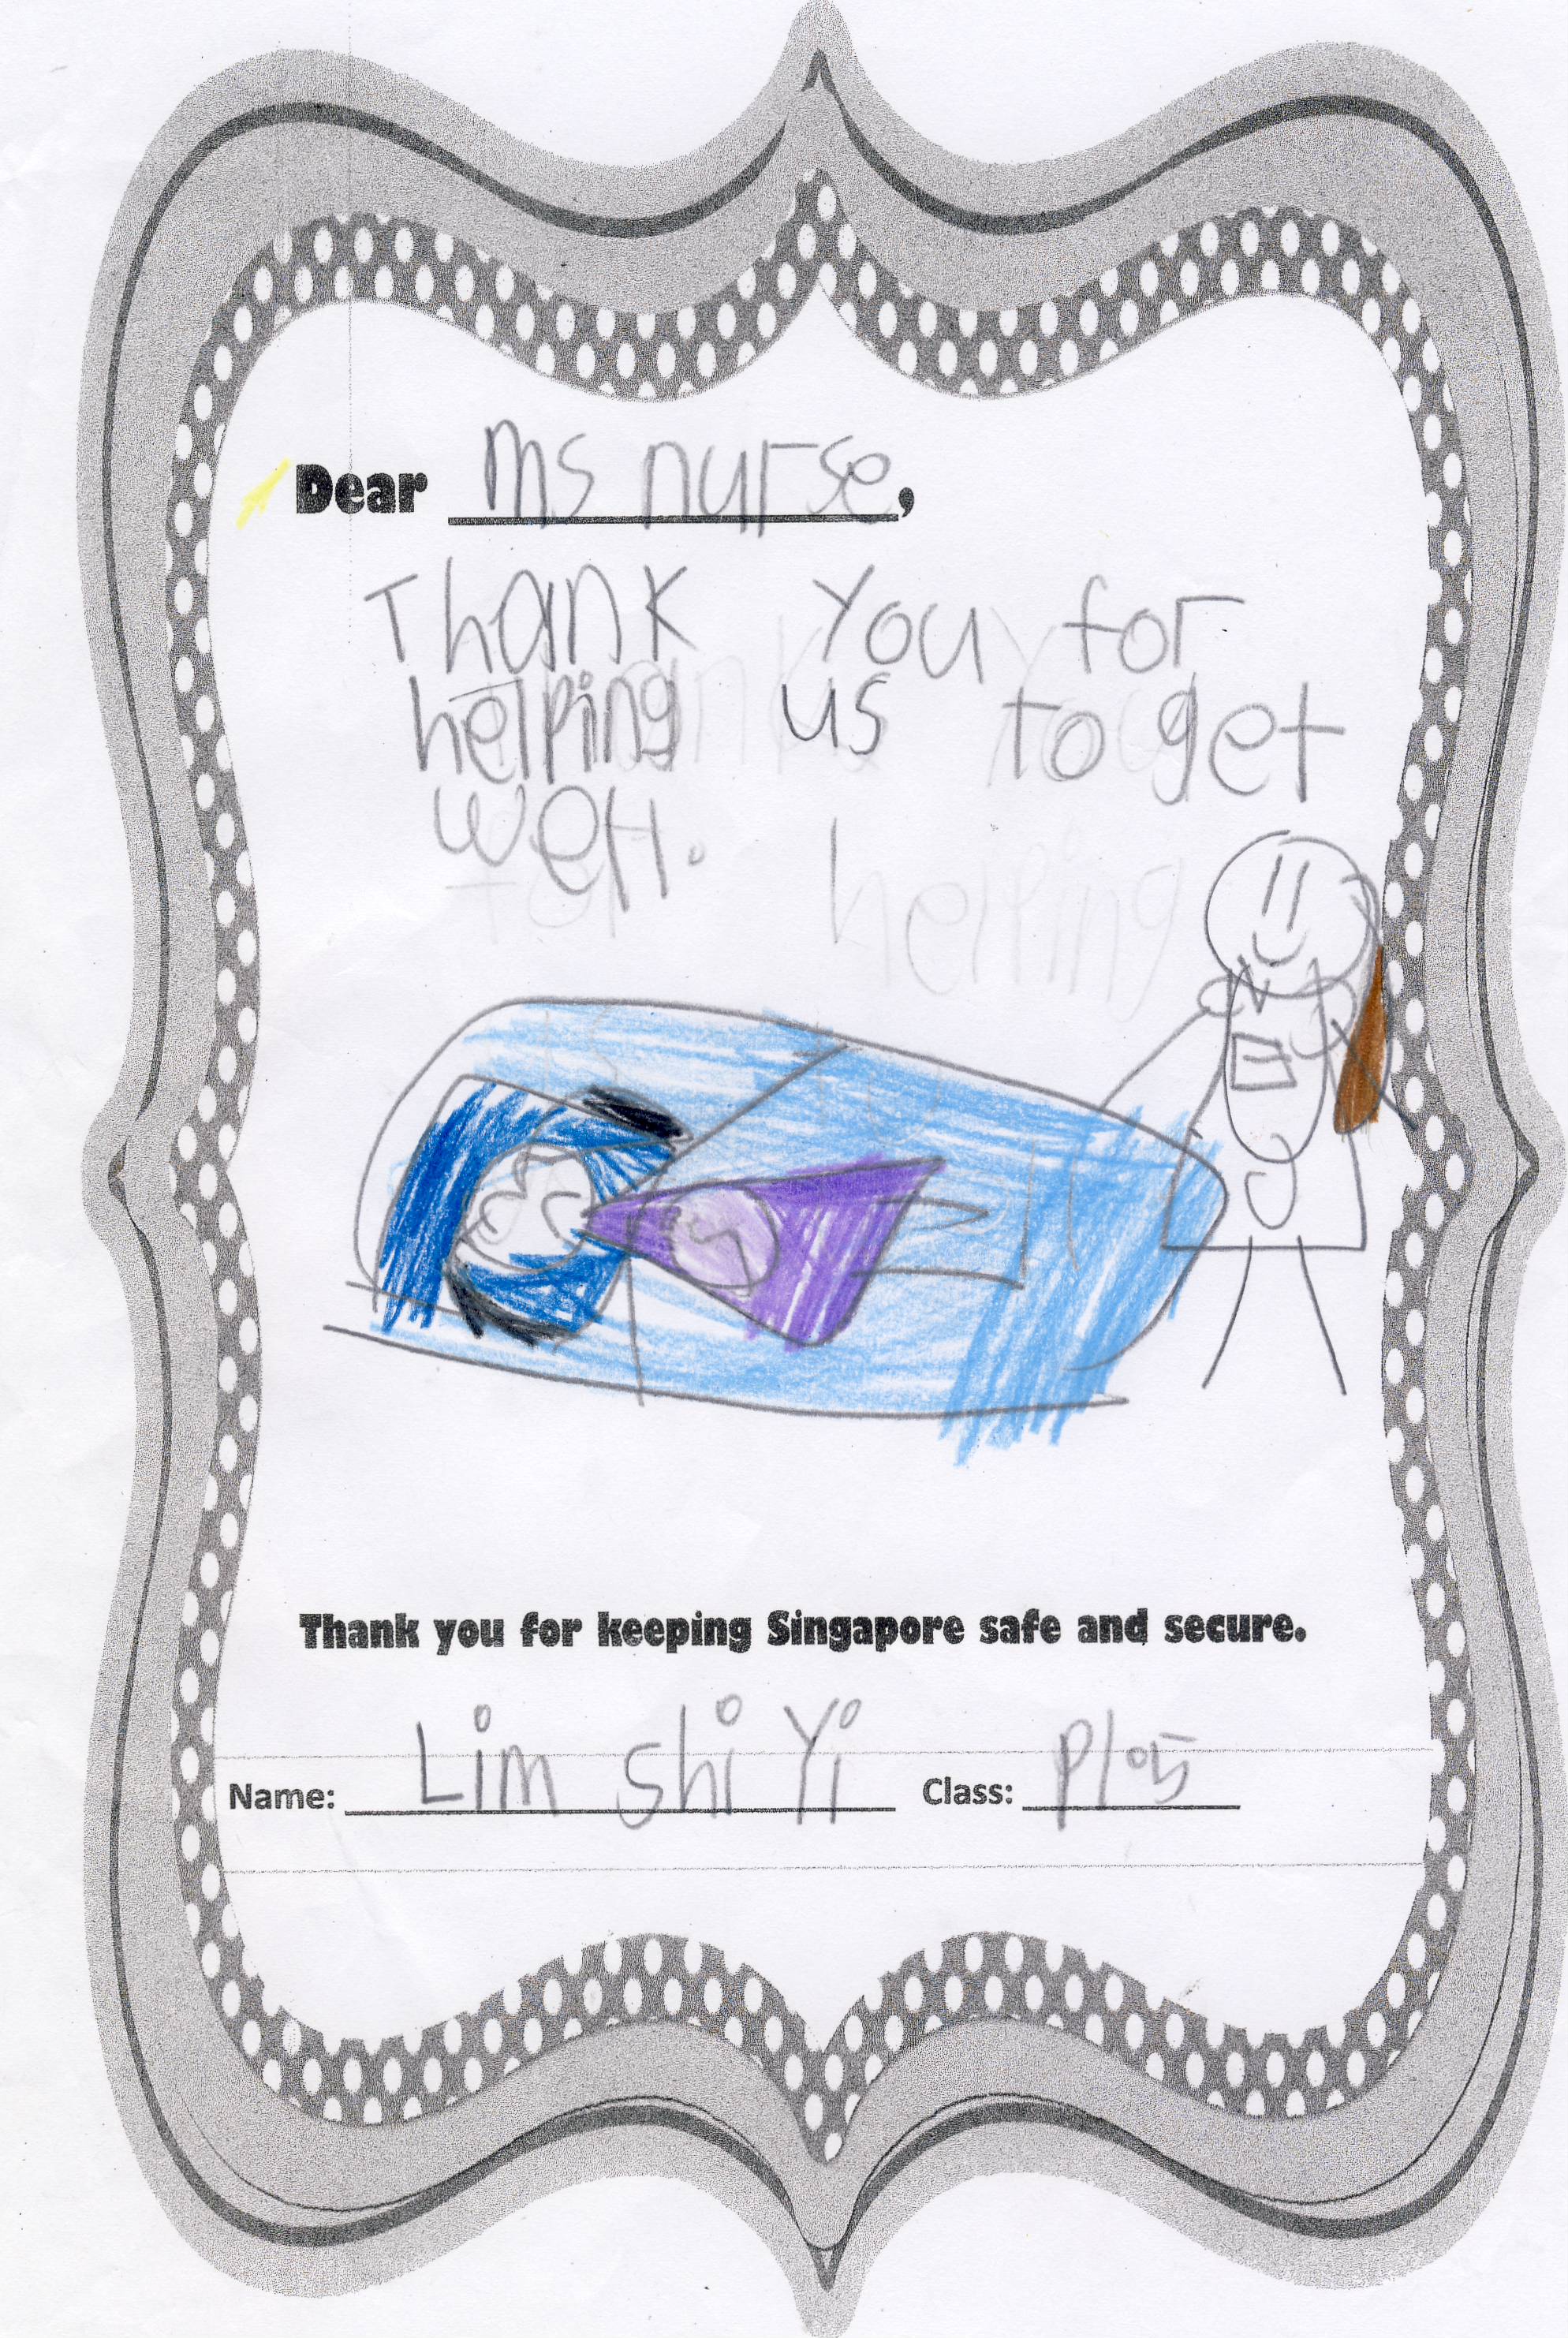 Dear ms nurse,
Thank you for
helping us to get
well.
helping
Thank you for keeping Singapore safe and secure.
Name: Lim Shi Yi Class: P105